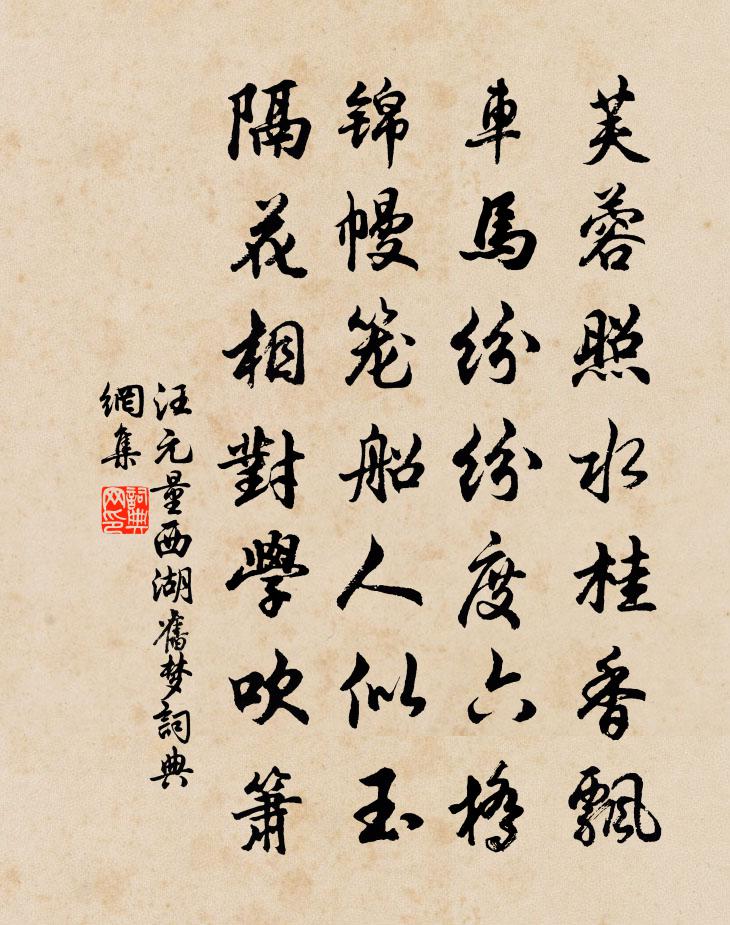 芙蓉照水桂香飄
車馬紛紛度六橋
錦幔笼船人似玉
隔花相對學吹簫
汪元量西湖舊梦詞典
網集
詞典网印